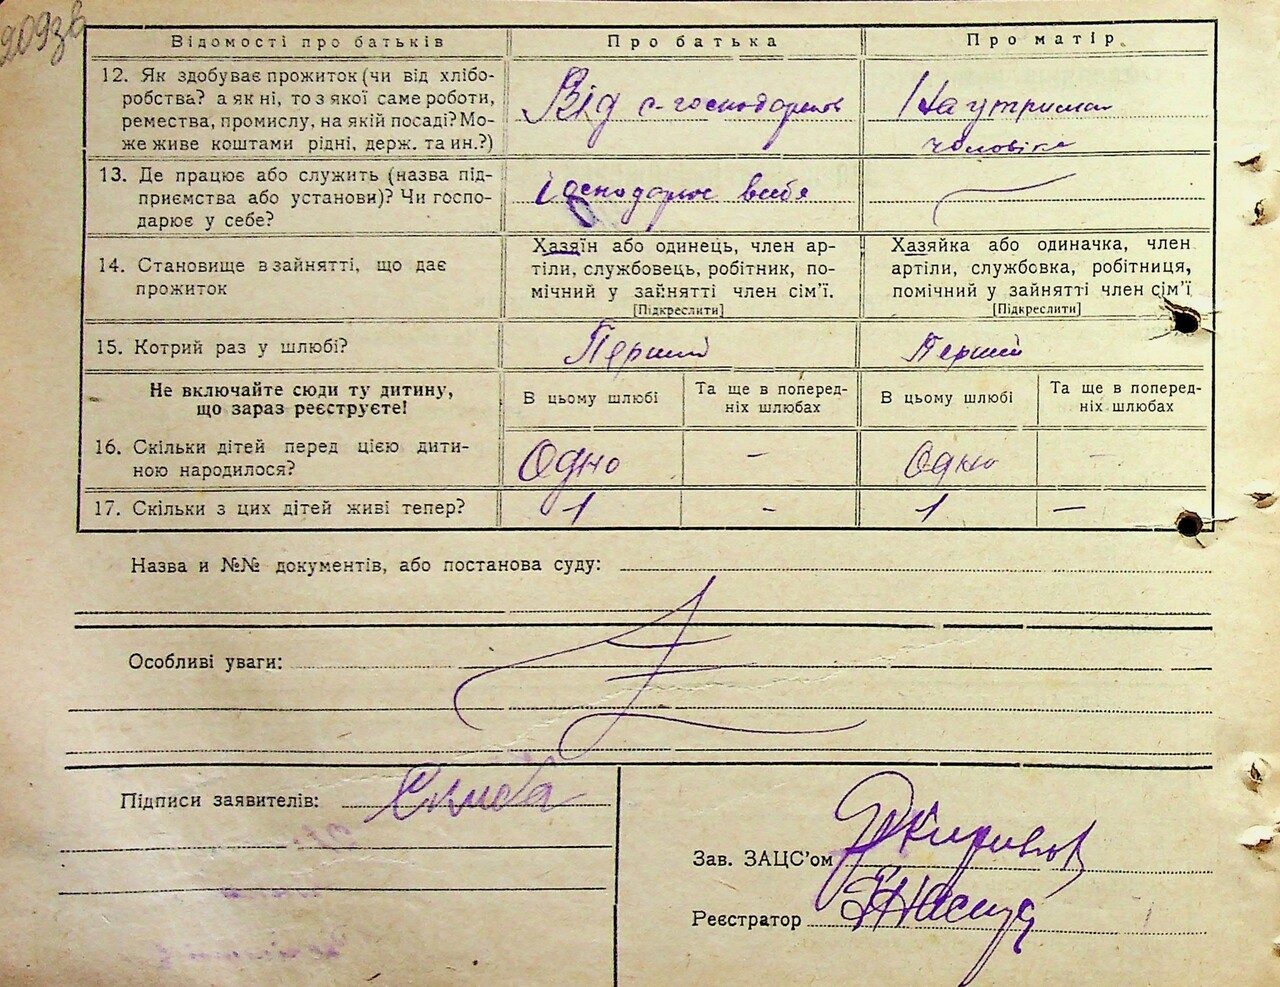 209зв
Відомості про батьків Про батька Про матір
12. Як здобуває прожиток (чи від хлібо-
робства? а як ні, то з якої саме роботи,
ремества, промислу, на якій посаді? Мо-
же живе коштами рідні, держ. та ин.?)
Від с-господарств
На утриман
чоловіка
13. Де працює або служить (назва під-
приємства або установи)? Чи госпо-
дарює у себе?
Господарює в себе
—
14. Становище в зайнятті, що дає
прожиток
Хазяїн або одинець, член ар-
тіли, службовець, робітник, по-
мічний у зайнятті член сім'ї.
[Підкреслити]
Хазяйка або одиначка, член
артіли, службовка, робітниця,
помічний у зайнятті член сім'ї
[Підкреслити]
15. Котрий раз у шлюбі? Перший Перший
Не включайте сюди ту дитину,
що зараз реєструєте!
В цьому шлюбі
Та ще в поперед-
ніх шлюбах
В цьому шлюбі
Та ще в поперед-
ніх шлюбах
16. Скільки дітей перед цією дити-
ною народилося?
Одно - Одно -
17. Скільки з цих дітей живі тепер? 1 - 1 —
Назва и №№ документів, або постанова суду:
Особливі уваги:
Підписи заявителів:
Зав. ЗАЦС'ом
Реєстратор